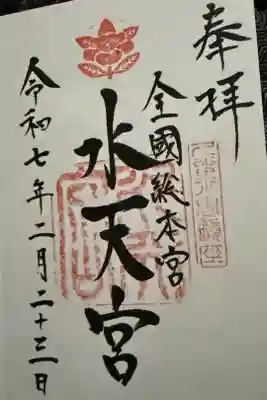 奉拝
全國総本宮
水天宮
令和七年二月二十三日